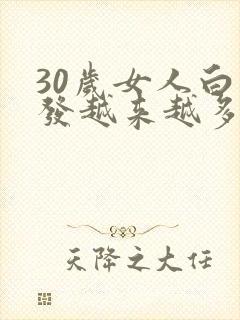 30歲女人白
發越来越多
天降之大任